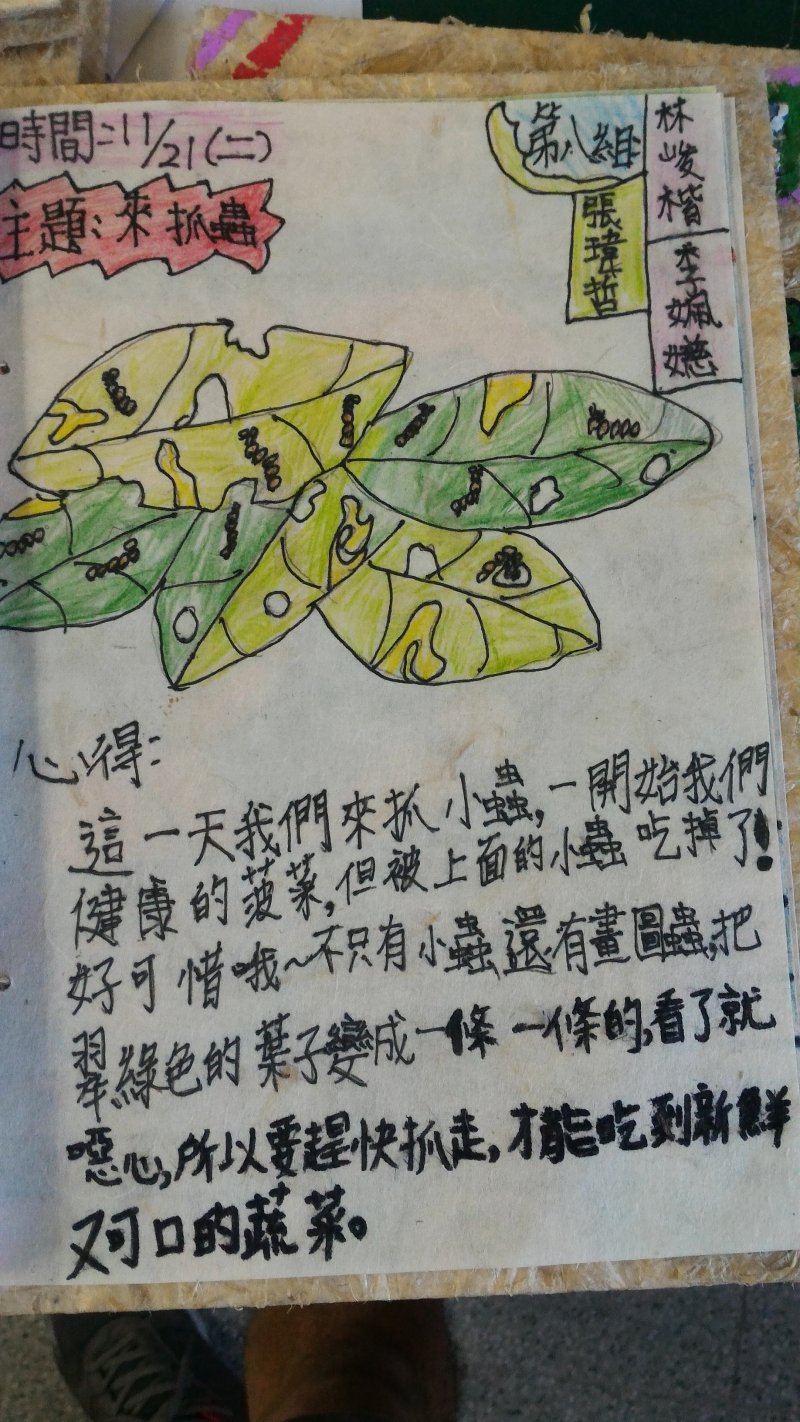 時間:11/21(二)
主題:來抓蟲
第八組
張瑋哲
林峻楷
李姵嬨
心得:
這一天我們來抓小蟲,一開始我們
健康的菠菜,但被上面的小蟲吃掉了!
好可惜哦~不只有小蟲還有畫圖蟲,把
翠綠色的葉子變成一條一條的,看了就
噁心,所以要趕快抓走,才能吃到新鮮
又可口的蔬菜。